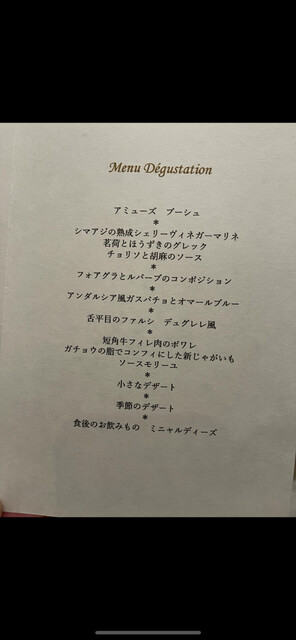 Menu Dégustation
アミューズ ブーシュ
*
シマアジの熟成シェリーヴィネガーマリネ
茗荷とほうずきのグレック
チョリソと胡麻のソース
*
フォアグラとルバーブのコンポジション
*
アンダルシア風ガスパチョとオマールブルー
*
舌平目のファルシ デュグレレ風
*
短角牛フィレ肉のポワレ
ガチョウの脂でコンフィにした新じゃがいも
ソースモリーユ
*
小さなデザート
*
季節のデザート
*
食後のお飲みもの ミニャルディーズ